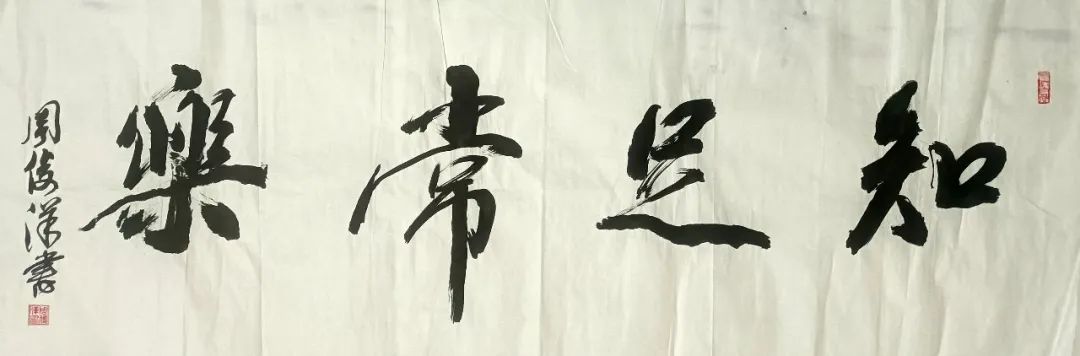 知足常樂
周俊洋書